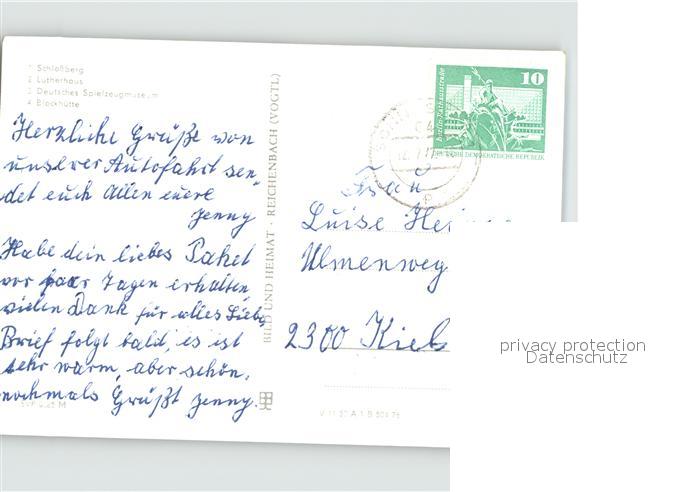 1 Schloßberg
2 Lutherhaus
3 Deutsches Spielzeugmuseum
4 Blockhütte
Herzliche Grüße von
unserer Autofahrt sen-
det euch Allen eure
Jenny
Habe dein liebes Paket
vor paar Tagen erhalten,
vielen Dank für alles Liebe,
Brief folgt bald, es ist
sehr warm, aber schön,
nochmals Grüßt Jenny.
BILD UND HEIMAT · REICHENBACH (VOGTL)
10
Berlin, Rathausstraße
DEUTSCHE DEMOKRATISCHE REPUBLIK
Frau
Luise
Ulmenweg
2300 Kiel
V 11 50 A 1 B 504 76
privacy protection
Datenschutz